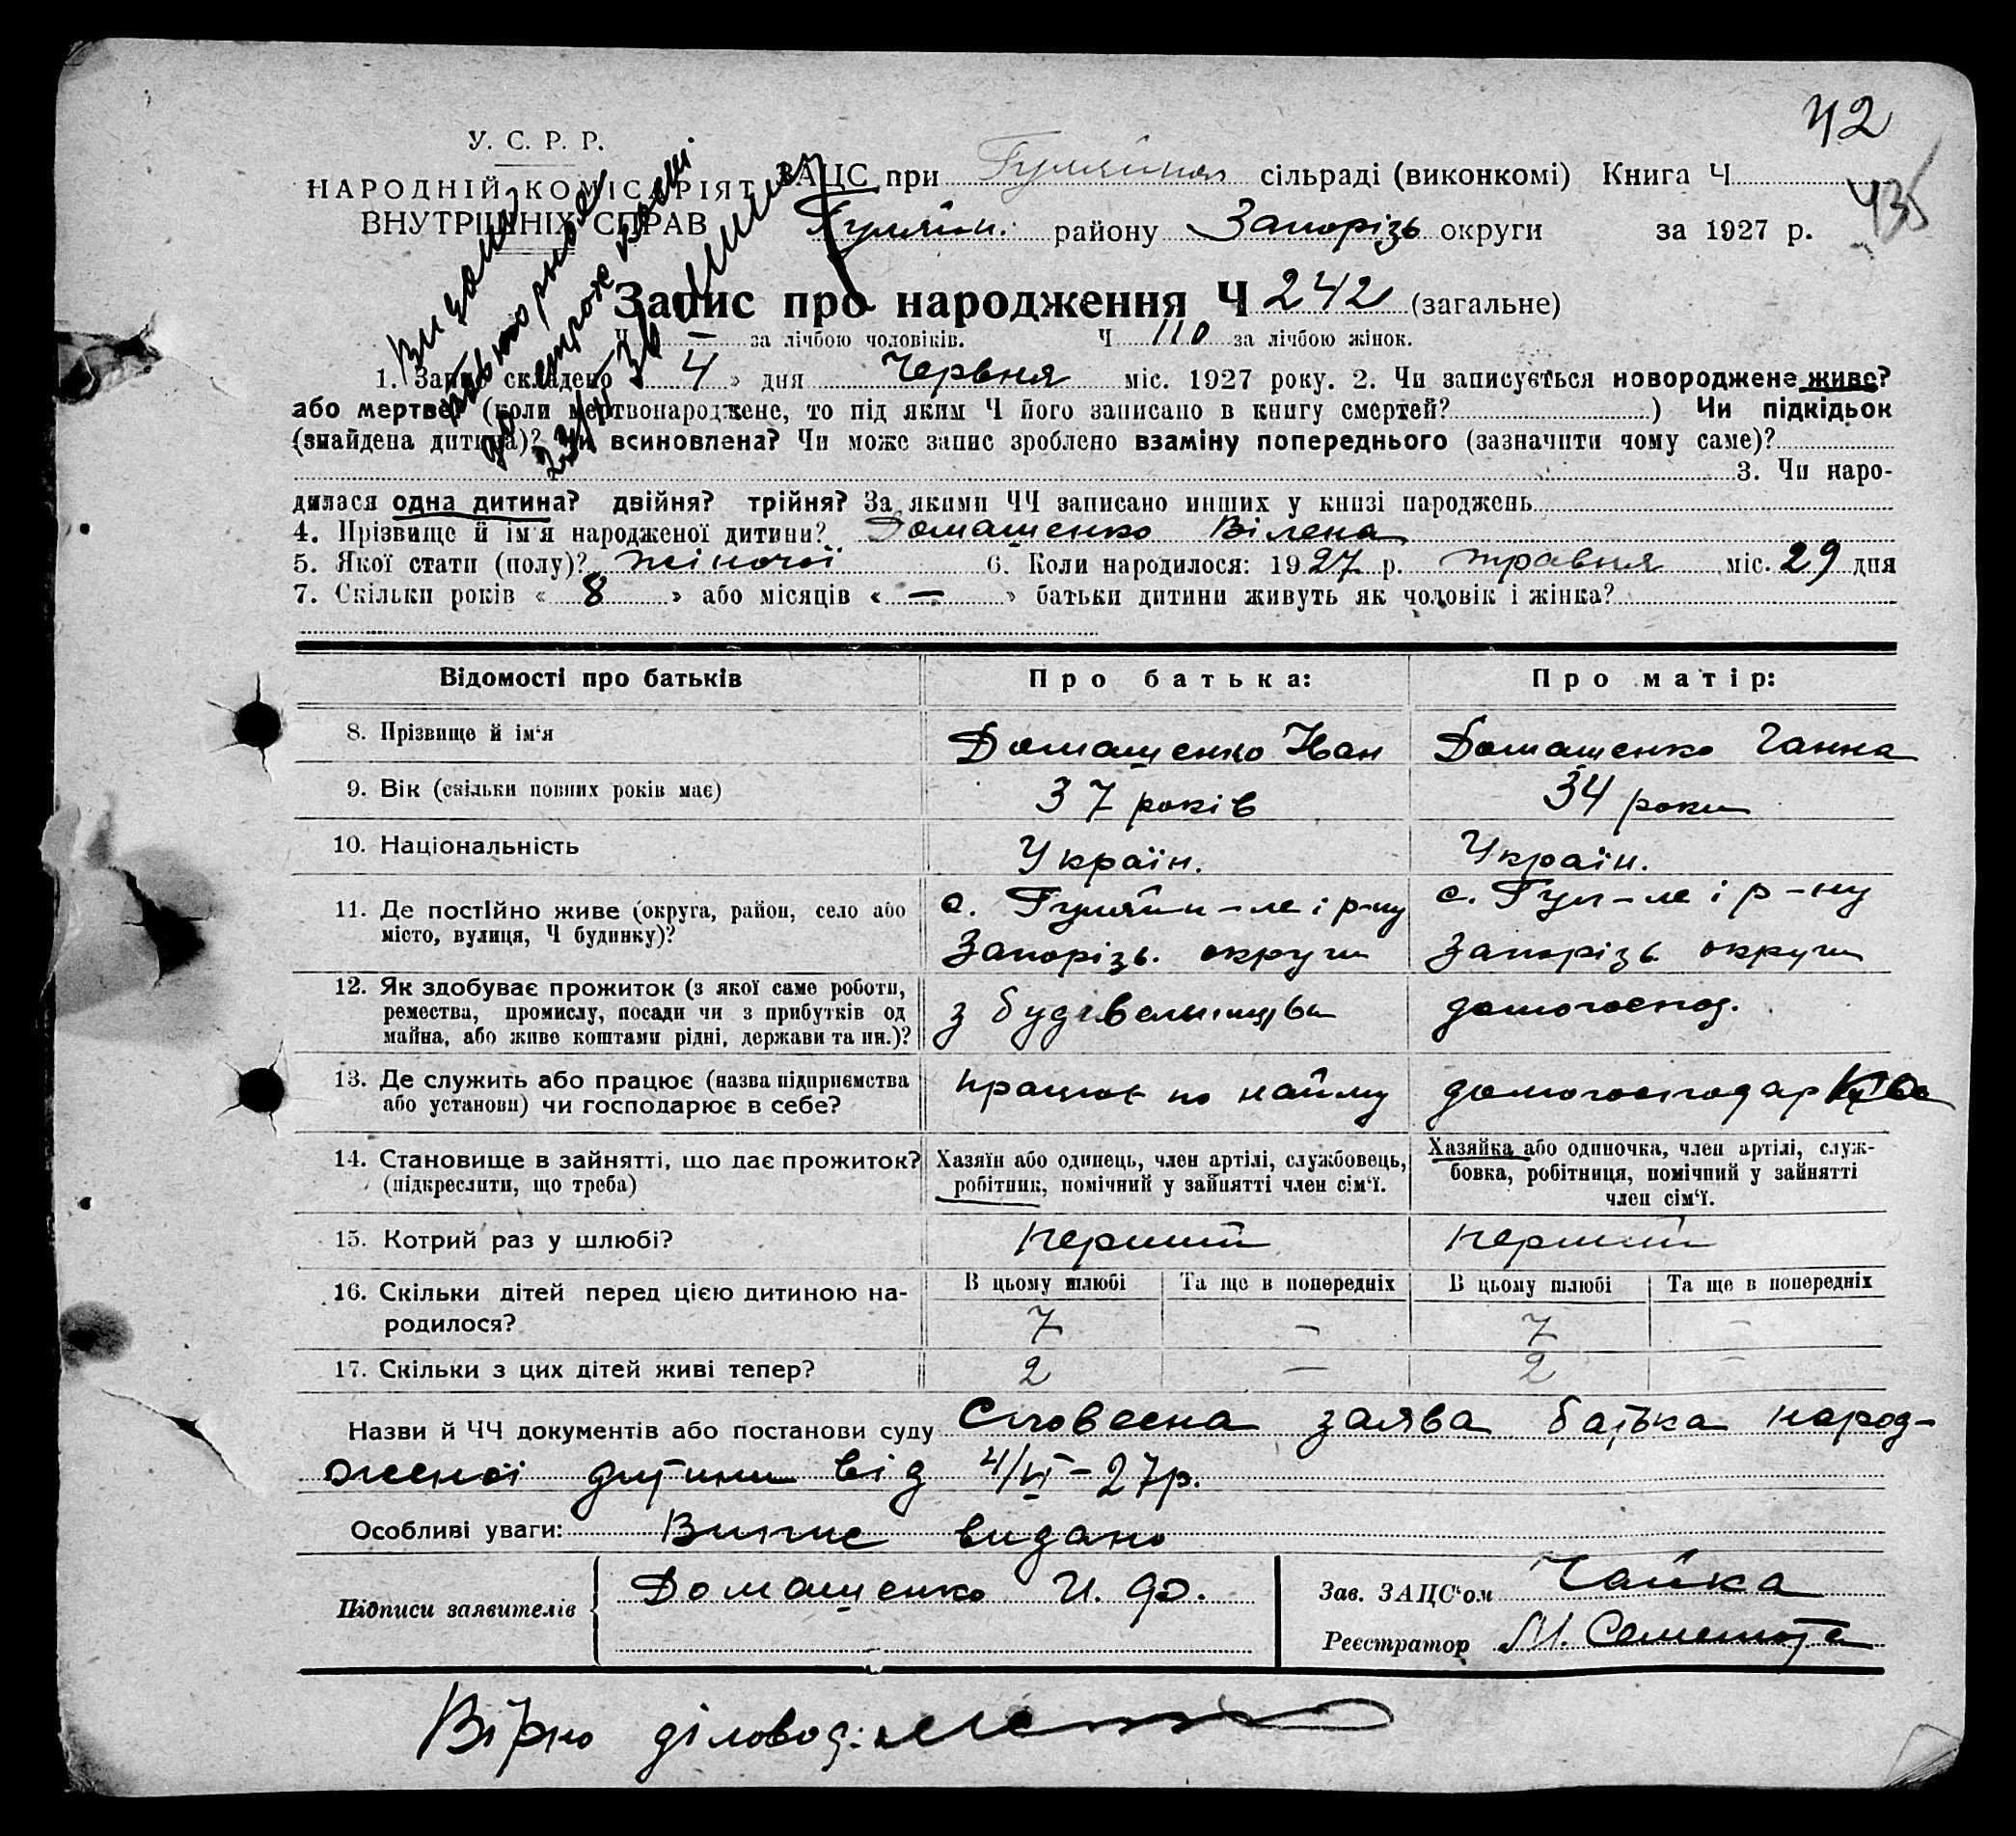 42
У. С. Р. Р.
НАРОДНІЙ КОМІСАРІЯТ
ВНУТРІШНІХ СПРАВ
ЗАЦС при Гуляйпол сільраді (виконкомі) Книга Ч
435
Гуляйп. району Запорізь округи за 1927 р.
Запис про народження Ч 242 (загальне)
Ч — за лічбою чоловіків. Ч 110 за лічбою жінок.
1. Запис складено „ 4 „ дня Червня міс. 1927 року. 2. Чи записується новороджене живе?
або мертве? (коли мертвонароджене, то під яким Ч його записано в книгу смертей? ) Чи підкідьок
(знайдена дитина)? Чи всиновлена? Чи може запис зроблено взаміну попереднього (зазначити чому саме)?
3. Чи наро-
дилася одна дитина? двійня? трійня? За якими ЧЧ записано инших у книзі народжень
4. Прізвище й ім'я народженої дитини? Домашенко Вілена
5. Якої стати (полу)? жіночої 6. Коли народилося: 1927 р. травня міс. 29 дня
7. Скільки років « 8 » або місяців « — » батьки дитини живуть як чоловік і жінка?
Відомості про батьків Про батька: Про матір:
8. Прізвище й ім'я Домашенко Іван Домашенко Ганна
9. Вік (скільки повних років має) 37 років 34 роки
10. Національність Україн. Україн.
11. Де постійно живе (округа, район, село або місто, вулиця, Ч будинку)? с. Гуляйп-ле і р-ну Запорізь. округи с. Гул-ле і р-ну Запорізь округи
12. Як здобуває прожиток (з якої саме роботи, ремества, промислу, посади чи з прибутків од майна, або живе коштами рідні, держави та ин.)? з будівельництва домогоспод.
13. Де служить або працює (назва підприємства або установи) чи господарює в себе? працює по найму домогосподарка
14. Становище в зайнятті, що дає прожиток? (підкреслити, що треба) Хазяїн або одинець, член артілі, службовець, робітник, помічний у зайнятті член сім'ї. Хазяйка або одиночка, член артілі, служ-бовка, робітниця, помічний у зайнятті член сім'ї.
15. Котрий раз у шлюбі? перший перший
16. Скільки дітей перед цією дитиною на-родилося? В цьому шлюбі Та ще в попередніх В цьому шлюбі Та ще в попередніх
7 — 7 —
17. Скільки з цих дітей живі тепер? 2 — 2 —
Назви й ЧЧ документів або постанови суду Словесна заява батька народ-
женої дитини від 4/VI-27р.
Особливі уваги: Випис видано
Підписи заявителів Домашенко И. Ф.
Зав. ЗАЦС'ом Чайка
Реєстратор М.
Вірно діловод: